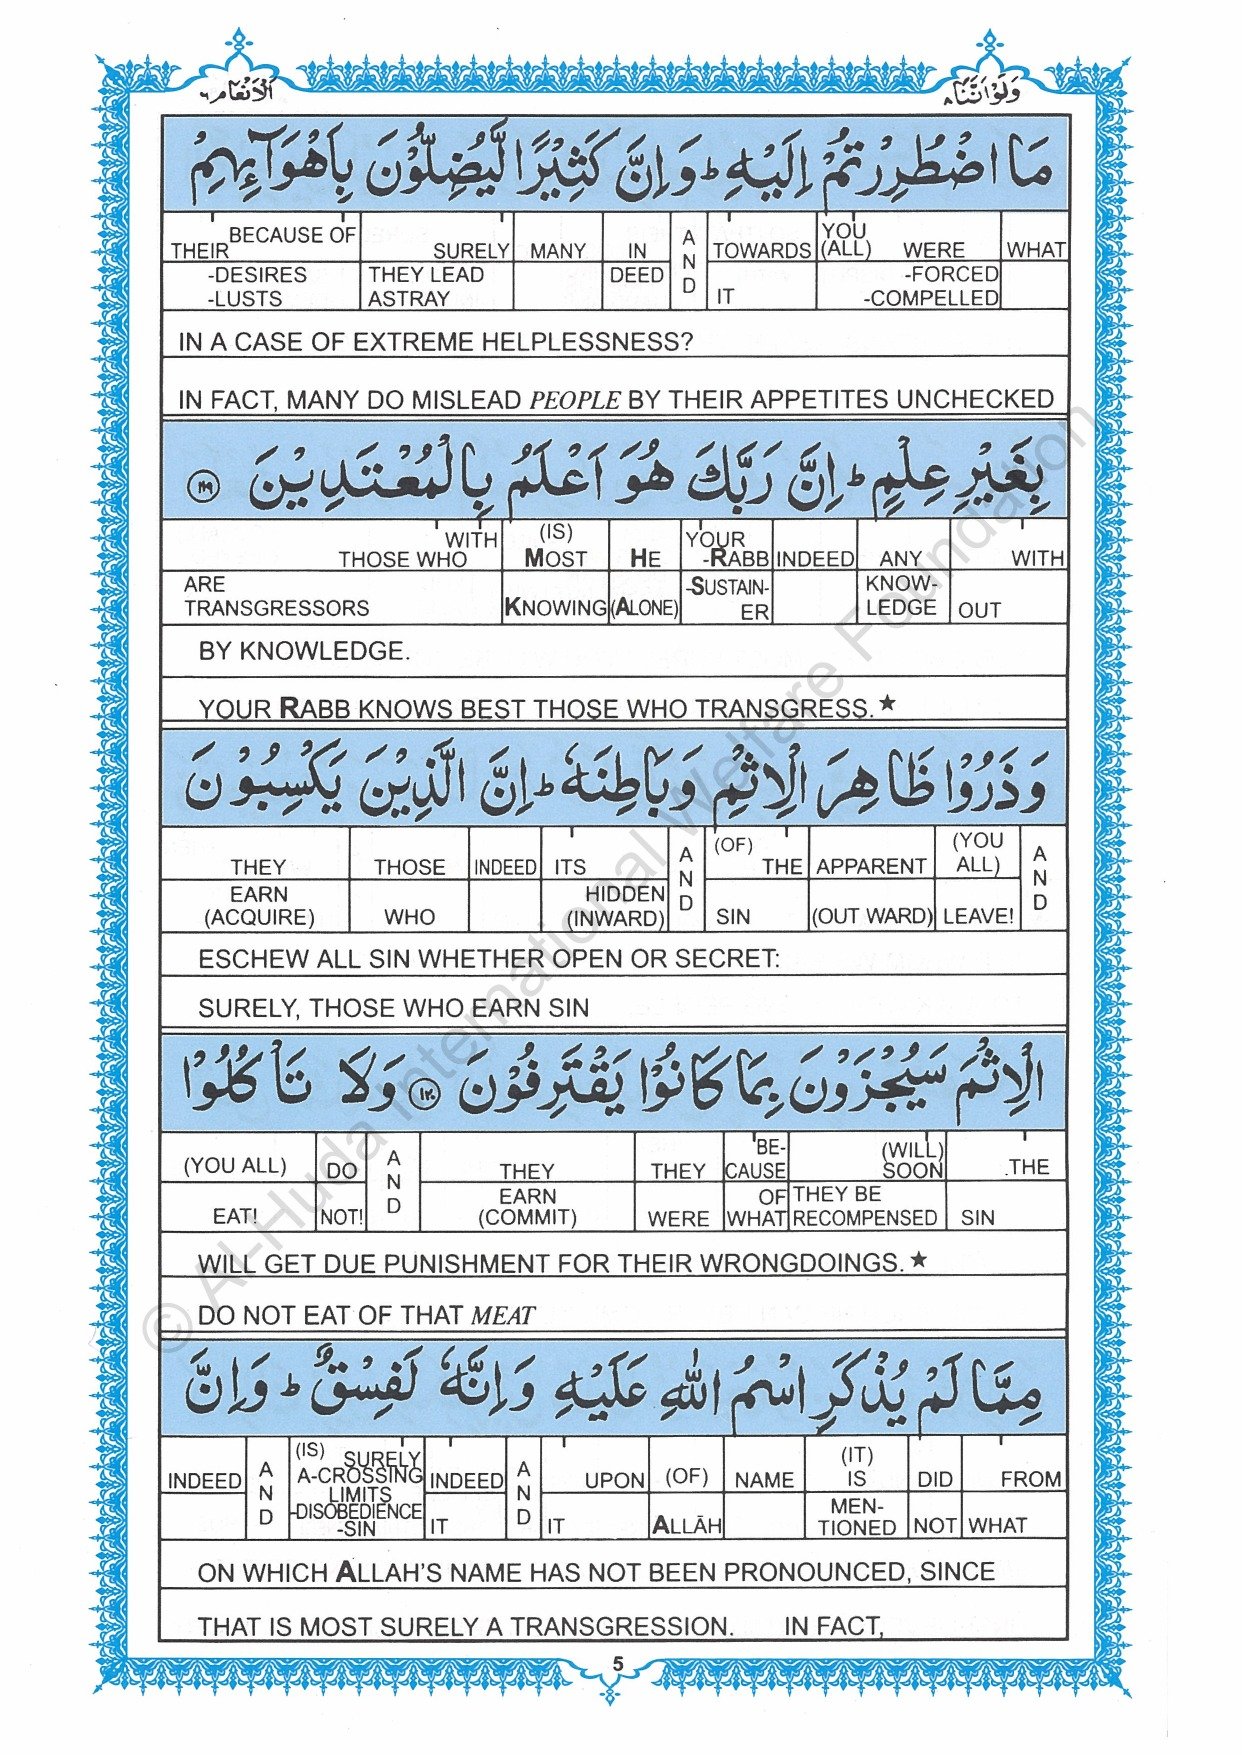 وَلَوْاَنَّنَا ٨
اَلْاَنْعَام ٦
مَا اضْطُرِرْتُمْ اِلَيْهِ ؕ وَ اِنَّ كَثِيْرًا لَّيُضِلُّوْنَ بِاَهْوَآئِهِمْ
THEIR BECAUSE OF SURELY MANY IN A TOWARDS YOU (ALL) WERE WHAT
-DESIRES -LUSTS THEY LEAD ASTRAY DEED N D IT -FORCED -COMPELLED
IN A CASE OF EXTREME HELPLESSNESS?
IN FACT, MANY DO MISLEAD PEOPLE BY THEIR APPETITES UNCHECKED
بِغَيْرِ عِلْمٍ ؕ اِنَّ رَبَّكَ هُوَ اَعْلَمُ بِالْمُعْتَدِيْنَ ١١٩
WITH THOSE WHO (IS) MOST HE YOUR -RABB INDEED ANY WITH
ARE TRANSGRESSORS KNOWING (ALONE) -SUSTAIN-ER KNOW-LEDGE OUT
BY KNOWLEDGE.
YOUR RABB KNOWS BEST THOSE WHO TRANSGRESS.★
وَ ذَرُوْا ظَاهِرَ الْاِثْمِ وَ بَاطِنَهٗ ؕ اِنَّ الَّذِيْنَ يَكْسِبُوْنَ
THEY THOSE INDEED ITS A (OF) THE APPARENT (YOU ALL) A
EARN (ACQUIRE) WHO HIDDEN (INWARD) N D SIN (OUT WARD) LEAVE! N D
ESCHEW ALL SIN WHETHER OPEN OR SECRET:
SURELY, THOSE WHO EARN SIN
الْاِثْمَ سَيُجْزَوْنَ بِمَا كَانُوْا يَقْتَرِفُوْنَ ١٢٠ وَلَا تَاْكُلُوْا
(YOU ALL) DO A THEY THEY BE-CAUSE (WILL) SOON .THE
EAT! NOT! N D EARN (COMMIT) WERE OF WHAT THEY BE RECOMPENSED SIN
WILL GET DUE PUNISHMENT FOR THEIR WRONGDOINGS.★
DO NOT EAT OF THAT MEAT
مِمَّا لَمْ يُذْكَرِ اسْمُ اللّٰهِ عَلَيْهِ وَ اِنَّهٗ لَفِسْقٌ ؕ وَ اِنَّ
INDEED A (IS) SURELY A-CROSSING INDEED A UPON (OF) NAME (IT) IS DID FROM
N D LIMITS -DISOBEDIENCE -SIN IT N D IT ALLĀH MEN-TIONED NOT WHAT
ON WHICH ALLAH'S NAME HAS NOT BEEN PRONOUNCED, SINCE
THAT IS MOST SURELY A TRANSGRESSION. IN FACT,
5
© Al-Huda International Welfare Foundation